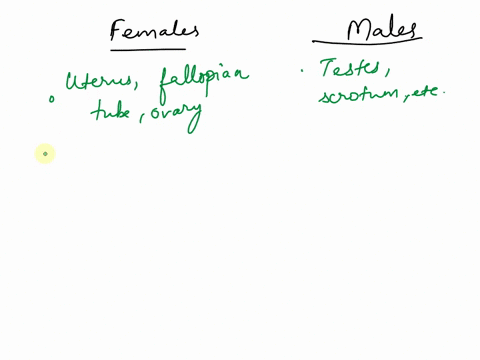 Females
Uterus, fallopian
tube, ovary
Males
Testes,
scrotum, etc.